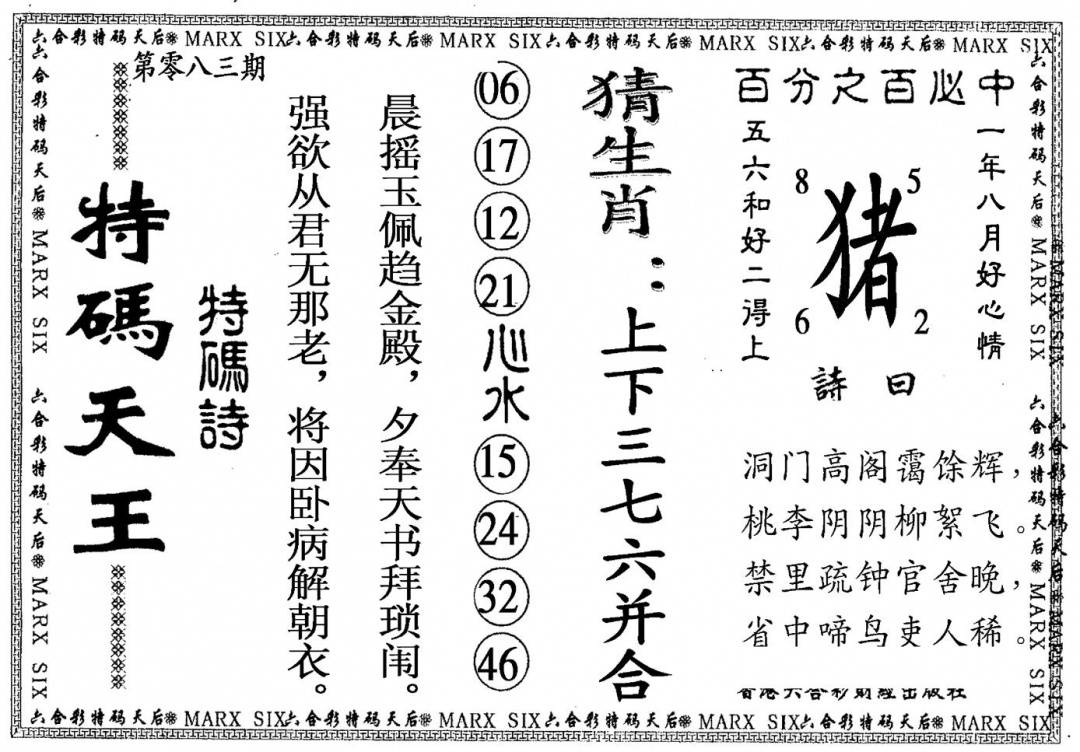 六合彩特码天后❋ MARX SIX六合彩特码天后❋ MARX SIX六合彩特码天后❋ MARX SIX六合彩特码天后❋ MARX SIX
六合彩特码天后❋ MARX SIX 六合彩特码天后❋ MARX SIX
百分之百必中
一年八月好心情
8 5
猪
6 2
五六和好二得上
詩曰
洞门高阁霭馀辉，
桃李阴阴柳絮飞。
禁里疏钟官舍晚，
省中啼鸟吏人稀。
香港六合彩财经出版社
猜生肖：上下三七六并合
06 17 12 21 心水 15 24 32 46
晨摇玉佩趋金殿，夕奉天书拜琐闱。
强欲从君无那老，将因卧病解朝衣。
特碼詩
第零八三期
特碼天王
六合彩特码天后❋ MARX SIX 六合彩特码天后❋ MARX SIX
六合彩特码天后❋ MARX SIX六合彩特码天后❋ MARX SIX六合彩特码天后❋ MARX SIX六合彩特码天后❋ MARX SIX